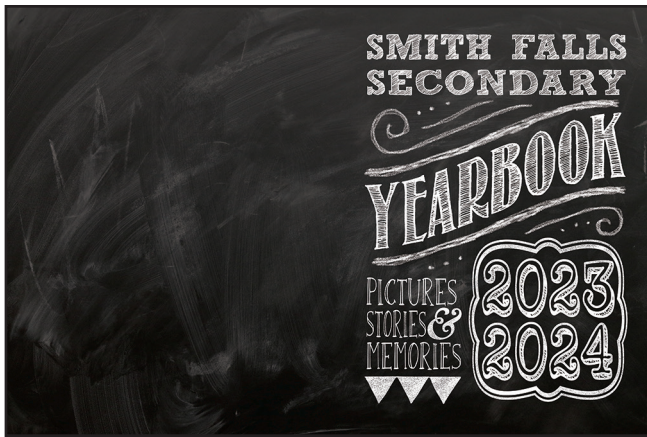 SMITH FALLS
SECONDARY
YEARBOOK
PICTURES
STORIES &
MEMORIES
2023
2024